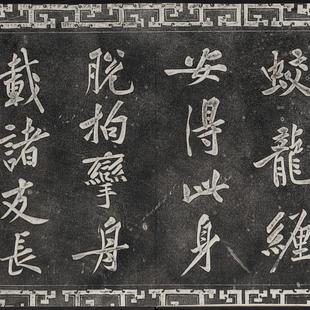 蛟龍纏
安得此身
脫拘攣舟
載諸友長